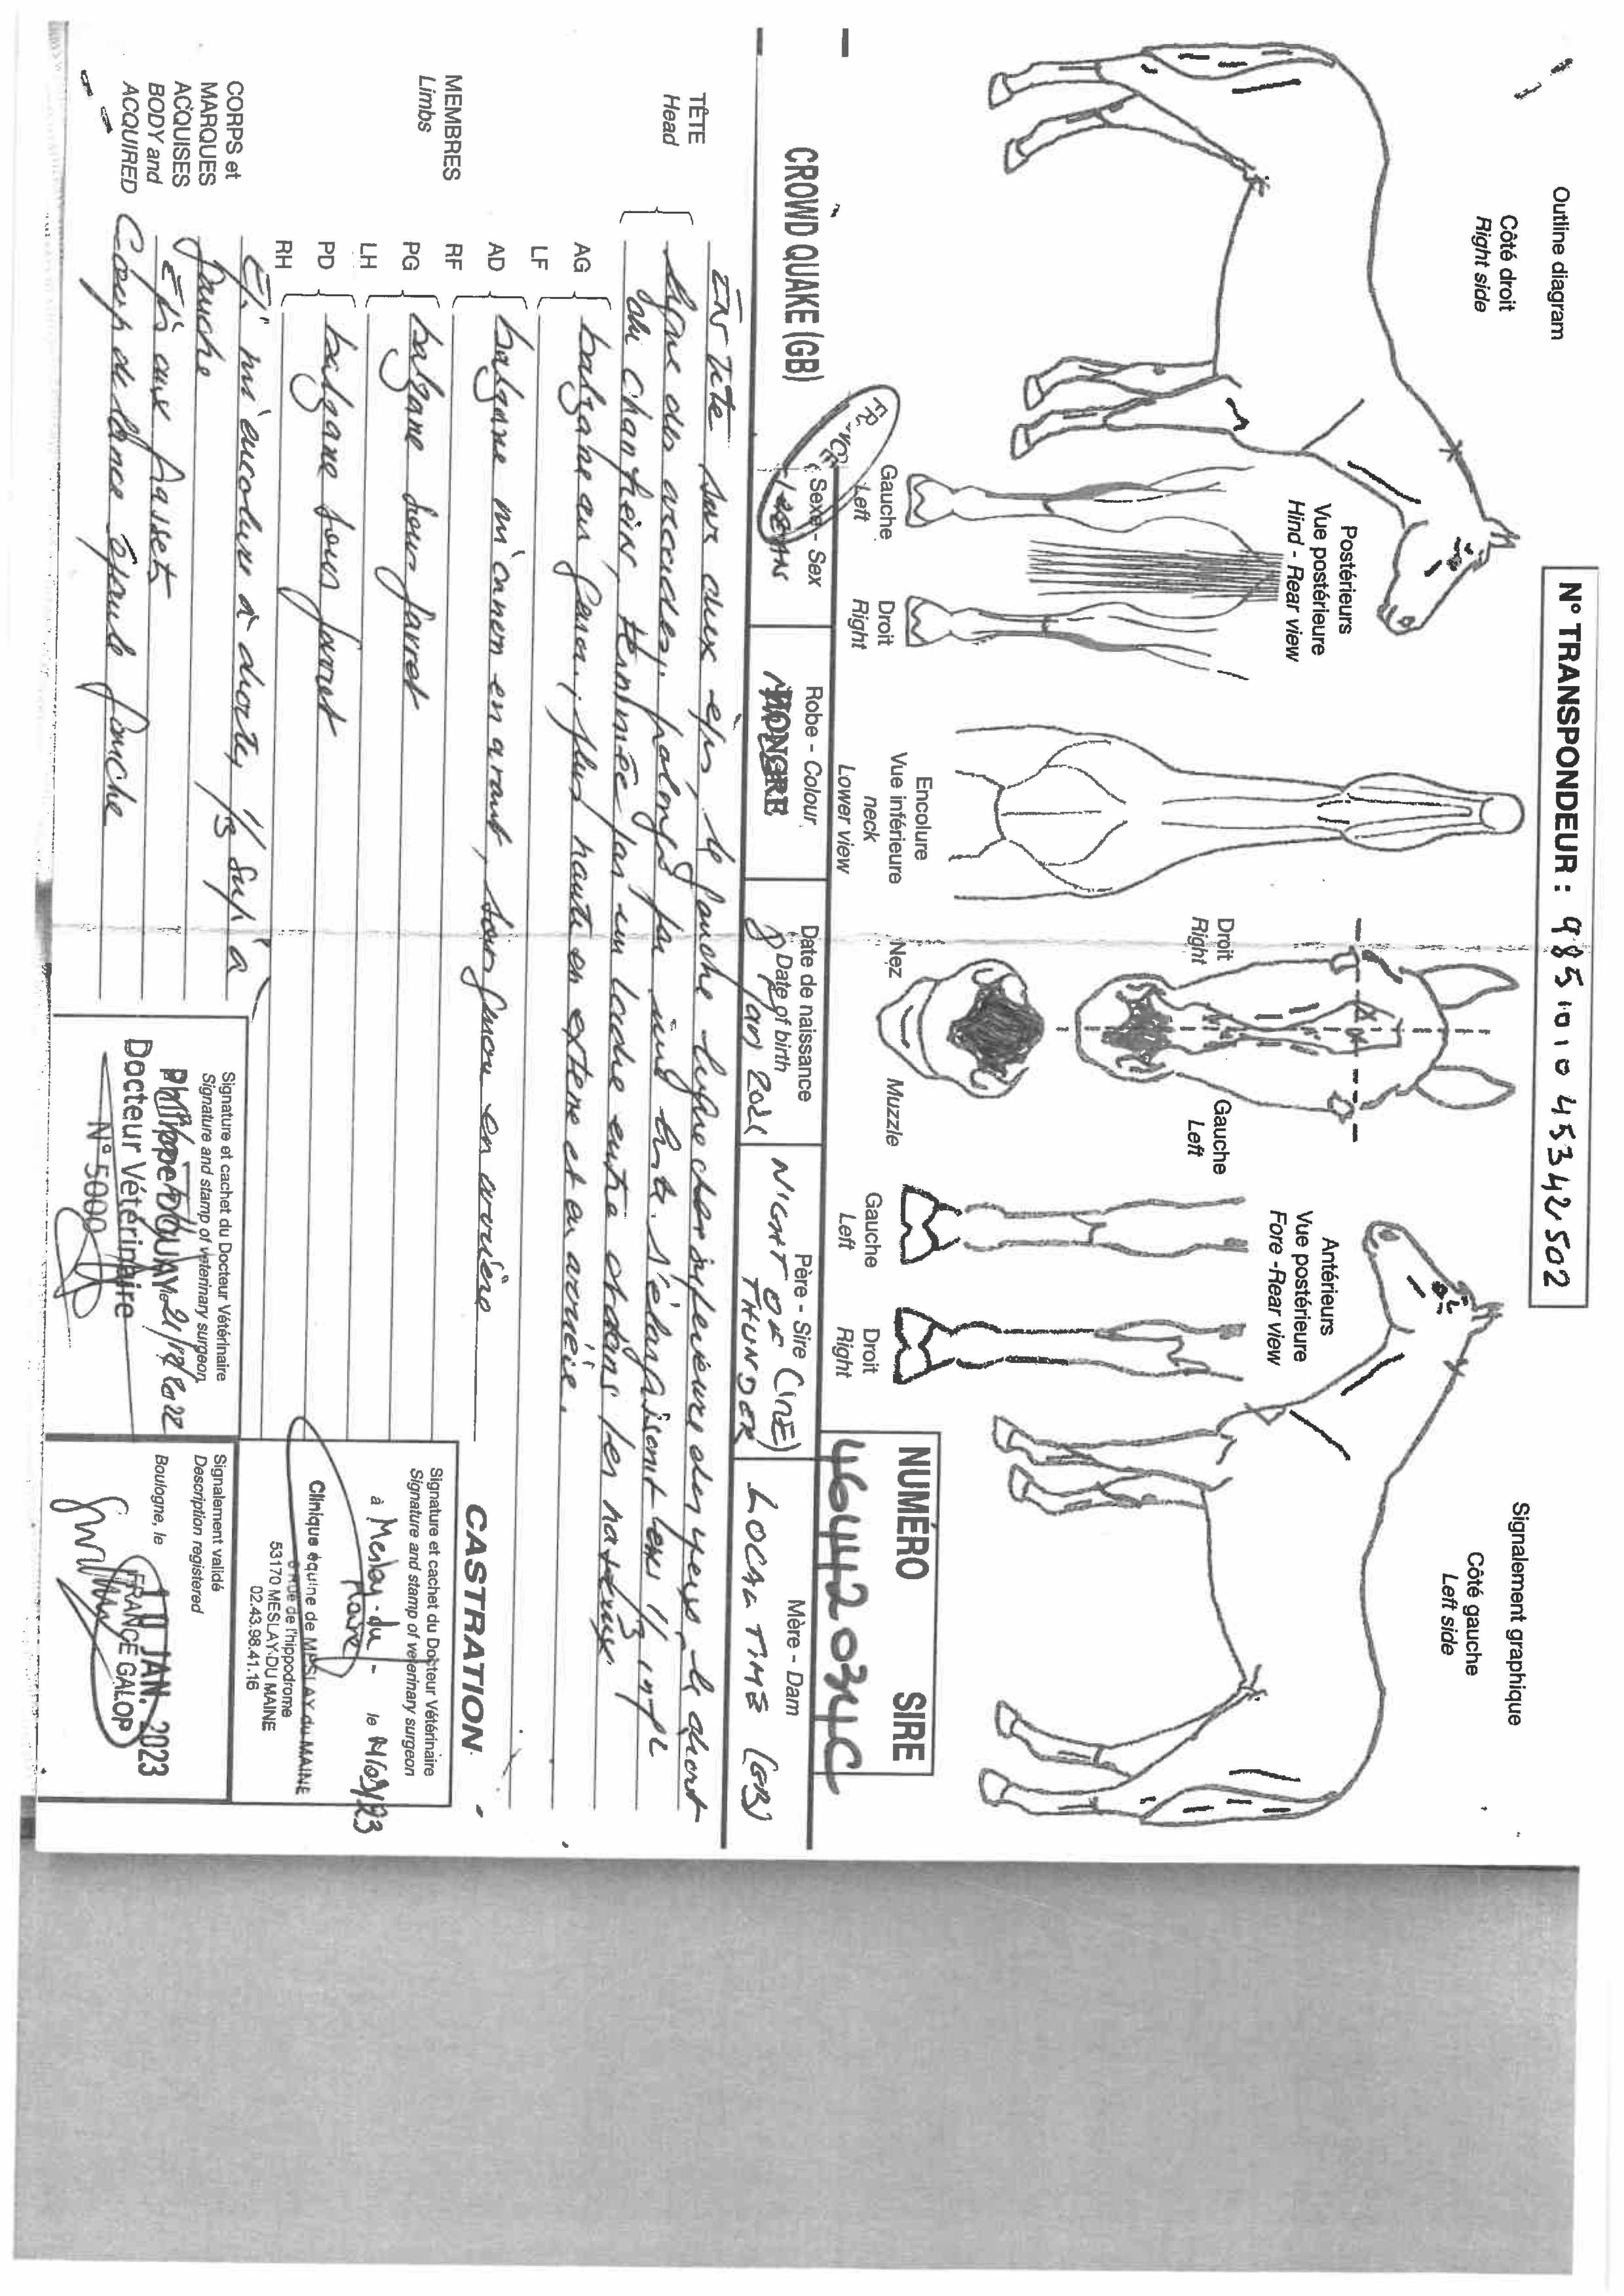 N° TRANSPONDEUR : 985101045342502
Outline diagram
Côté droit
Right side
Signalement graphique
Côté gauche
Left side
Postérieurs
Vue postérieure
Hind - Rear view
Gauche
Left
Droit
Right
Encolure
Vue inférieure
neck
Lower view
Droit
Right
Gauche
Left
Nez
Muzzle
Antérieurs
Vue postérieure
Fore - Rear view
Gauche
Left
Droit
Right
NUMÉRO SIRE
CROWD QUAKE (GB)
Sexe - Sex
Robe - Colour
Date de naissance
Date of birth
8 2021
Père - Sire
NIGHT OF (IRE)
THUNDER
Mère - Dam
LOCAL TIME (GB)
TÊTE
Head
En tête sur deux épis, le gauche ligne des yeux, le droit
ligne des prolongé
du chanfrein, terminée par un ladre entre et dans les naseaux
MEMBRES
Limbs
AG
LF
balzane au genou, plus haute en externe et en arrière.
AD
RF
balzane mi canon en avant, sous genou en arrière
PG
LH
balzane sous jarret
PD
RH
balzane sous jarret
CORPS et
MARQUES
ACQUISES
BODY and
ACQUIRED
Epi mi encolure à droite, 1/3 sup à
gauche
Epi aux grassets
Coup de lance épaule gauche
Signature et cachet du Docteur Vétérinaire
Signature and stamp of veterinary surgeon
Docteur Vétérinaire
N° 5000
CASTRATION
Signature et cachet du Docteur Vétérinaire
Signature and stamp of veterinary surgeon
à Meslay-du-
Maine
le
Clinique équine de MESLAY du MAINE
rue de l'hippodrome
53170 MESLAY-DU MAINE
02.43.98.41.16
Signalement validé
Description registered
Boulogne, le
JAN. 2023
FRANCE GALOP